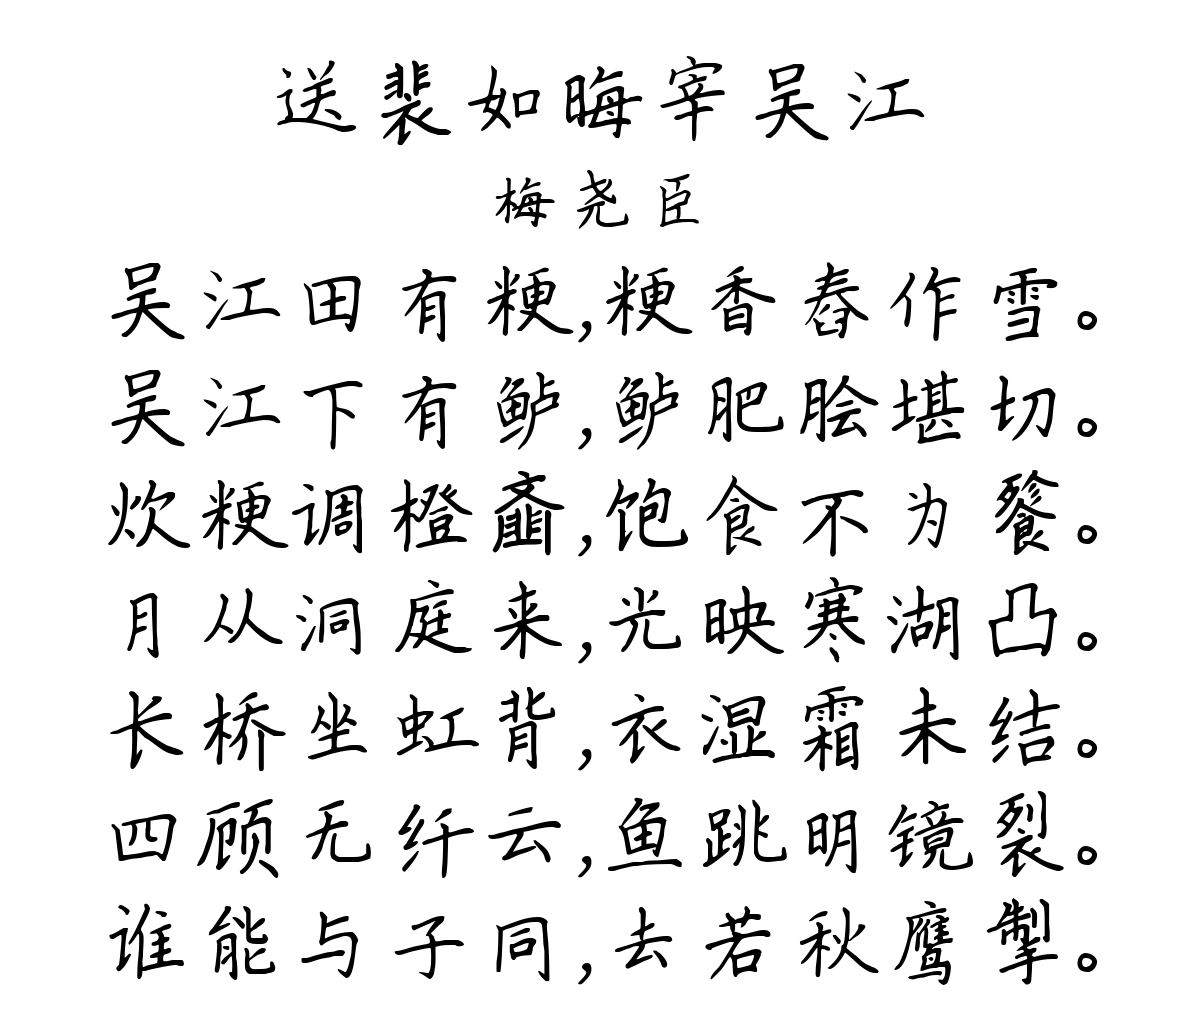 送裴如晦宰吴江
梅尧臣
吴江田有粳,粳香舂作雪。
吴江下有鲈,鲈肥脍堪切。
炊粳调橙齑,饱食不为餮。
月从洞庭来,光映寒湖凸。
长桥坐虹背,衣湿霜未结。
四顾无纤云,鱼跳明镜裂。
谁能与子同,去若秋鹰掣。